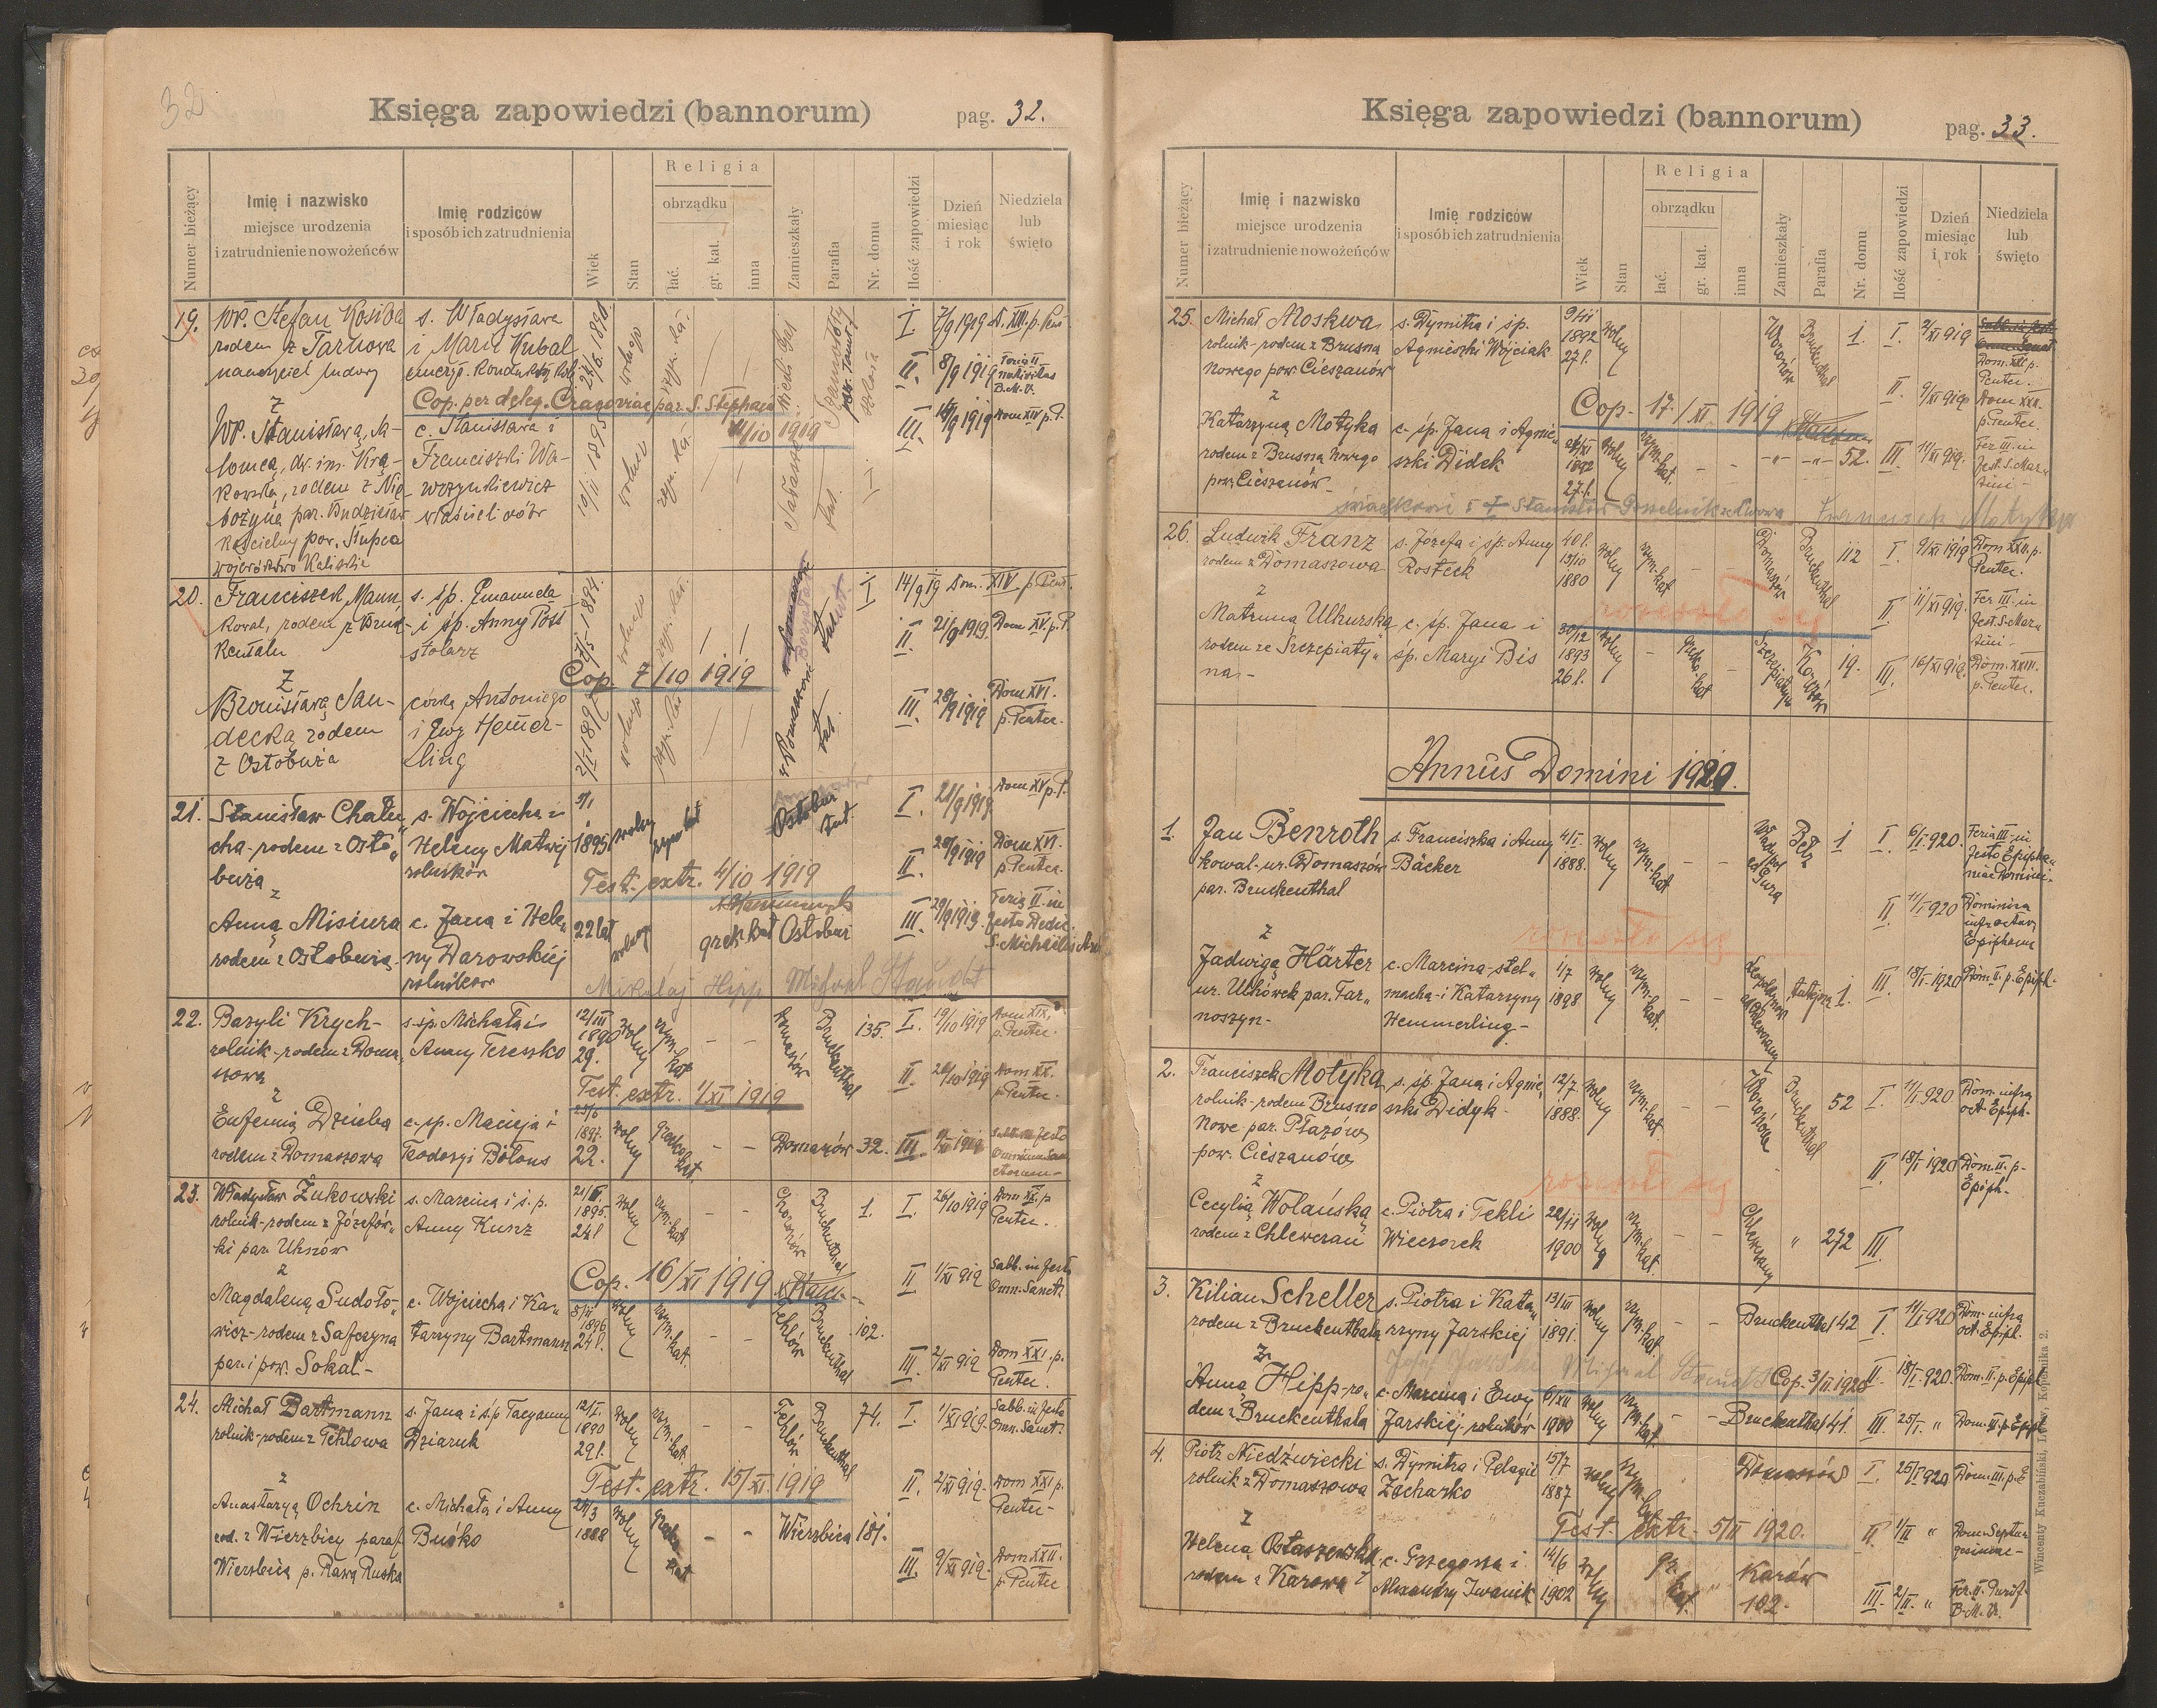 32
Księga zapowiedzi (bannorum)
pag. 32.
Numer bieżący
Imię i nazwisko
miejsce urodzenia
i zatrudnienie nowożeńców
Imię rodziców
i sposób ich zatrudnienia
Wiek
Stan
Religia
obrządku
łać.
gr. kat.
inna
Zamieszkały
Parafia
Nr. domu
Ilość zapowiedzi
Dzień
miesiąc
i rok
Niedziela
lub
święto
19. Wp. Stefan Kosiba s. Władysława
rodem z Tarnowa i Marii Kubal
nauczyciel ludowy
I. 7/9 1919
II. 8/9 1919 Feria II
nativitas
B.M.V.
Cop. per deleg. Cracoviae par. S. Stephani
11/10 1919
z
Wp. Stanisławą c. Stanisława i
Franciszki
III. 14/9 1919 Dom XIV p. P.
rodem z
par. Budzisław właścicieli
Kościelny pow. Słupca
województwo Kaliskie
20. Franciszek Mann s. śp. Emanuela
kowal, rodem z Bruc- i śp. Anny Post
kentalu stolarz
I 14/9 19 Dom. XIV p. Pent.
II. 21/9 1919. Dom XV. p. P.
Cop. 7/10 1919
z
Bronisławą San- córką Antoniego
decką rodem i Ewy Hemer-
z Ostobuża ling
2/I 1897
III. 28/9 1919 Dom XVI.
p. Pentec.
21. Stanisław Chału- s. Wojciecha i
cha - rodem z Osto- Heleny Matwij
buża rolników
5/I
1895 wolny
Ostobuż
I. 21/9 1919 Dom XV p. P.
II. 28/9 1919 Dom XVI.
p. Pentec.
Test. extr. 4/10 1919
z
Anną Misiura c. Jana i Hele-
rodem z Ostobuża ny Darowskiej
rolników
22 lat wolny grek kat Ostobuż
III. 29/9 1919. Feria II in
festo Dedic.
S. Michaelis Arch
Mikołaj Hipp Michał Staudt
22. Bazyli Krych- s. śp. Michała i
rolnik - rodem z Doma- Anny Tereszko
szowa
12/III
1890
29.
wolny rzym. kat - - Domaszów Bruckenthal 135. I. 19/10 1919 Dom XIX.
p. Pentec.
II. 26/10 1919 Dom XX.
p. Pentec.
Test. extr. 1/XI 1919
z
Eufemią Dziuba c. śp. Macieja i
rodem z Domaszowa Teodozji Bołous
25/6
1897.
22.
wolny grecko kat. - - Domaszów 32. III. 1/XI 1919 Sabb. in festo
Omnium San-
ctorum -
23. Władysław Żukowski s. Marcina i ś. p.
rolnik - rodem z Józefów- Anny Kunz
ki par. Uhnów
1895.
24 l
wolny rzym. kat. - - Choronów Bruckenthal 1. I. 26/10 1919 Dom XX. p
Pentec.
II 1/XI 919 Sabb. in festo
Omn. Sanct.
Cop. 16/XI 1919.
z
Magdaleną Sudoło- c. Wojciecha i Ka-
wicz - rodem z Safczyna tarzyny Bartmann
par. i pow. Sokal -
1896
24 l.
wolny rzym. kat. - - Tehlów Bruckenthal 102. III. 2/XI 919 Dom XXI. p.
Pentec.
24. Michał Bartmann s. Jana i śp Tacyanny
rolnik - rodem z Tehlowa Dziaruk
12/I.
1890
29 l.
wolny rzym. kat. - - Tehlów Bruckenthal 74. I. 1/XI 919. Sabb. in festo
Omn. Sanct.
II. 2/XI 919. Dom XXI p.
Pentec -
Test. extr. 15/XI 1919
z
Anastazyą Ochrin c. Michała i Anny
rod. z Wierzbicy paraf. Bućko
Wierzbica p. Rawa Ruska
24/3
1888
wolny grecko kat - - Wierzbica 181. III. 9/XI 919. Dom XXII.
p. Pentec
Księga zapowiedzi (bannorum)
pag. 33.
Numer bieżący
Imię i nazwisko
miejsce urodzenia
i zatrudnienie nowożeńców
Imię rodziców
i sposób ich zatrudnienia
Wiek
Stan
Religia
obrządku
łać.
gr. kat.
inna
Zamieszkały
Parafia
Nr. domu
Ilość zapowiedzi
Dzień
miesiąc
i rok
Niedziela
lub
święto
25. Michał Moskwa s. Dymitra i śp.
rolnik - rodem z Brusna Agnieszki Wójciak
Nowego pow. Cieszanów
1892
27 l.
wolny Woronów Bruckenthal 1. I. 2/XI 919
Dom. XXI. p.
Pentec.
II. 9/XI 919. Dom XXII.
p. Pentec.
Cop. 17/XI. 1919
z
Katarzyną Motyka c. śp. Jana i Agnie-
rodem z Brusna Nowego szki Didek
pow. Cieszanów -
1892
27 l.
wolny rzym. kat. - - -"- -"- 52. III. 11/XI 919. Fer III. in
fest. S. Mar-
tini -
świadkowie: + Stanisław ze Lwowa Franciszek Motyka
26. Ludwik Franz s. Józefa i śp. Anny
rodem z Domaszowa Rosteck
40 l.
13/10
1880
wolny rzym. kat - - Domaszów Bruckenthal 112 I. 9/XI 1919 Dom XXII. p.
Pentec.
II. 11/XI 919. Fer III. in
fest. S. Mar-
tini -
rozeszło się
z
Matruną Ulhurska c. śp. Jana i
rodem ze Szczepiaty- śp. Maryi Bis
na. -
30/12
1893
26 l.
wolny - grecko kat - Szczepiatyn Korczów 19. III. 16/XI 919. Dom. XXIII.
p. Pentec.
Annus Domini 1920.
1. Jan Benroth s. Franciszka i Anny
kowal - ur. Domaszów Bäcker
par. Bruckenthal
4/I.
1888.
wolny rzym. kat - - Bełz 1 I. 6/I. 920. Feria III. in
festo Epipha-
niae Domini.
II. 11/I 920 Dominica
infr octav
Epiphan
rozeszło się
z
Jadwigą Härter c. Marcina - stel-
ur. Ulhówek par. Tar- macha - i Katarzyny
noszyn - Hemmerling -
1/7
1898
wolny rzym. kat. - - 1. III. 18/I 1920 Dom. II. p. Epiph.
2. Franciszek Motyka s. śp. Jana i Agnie-
rolnik - rodem Brusno szki Didyk -
Nowe par. Płazów
pow. Cieszanów
12/7
1888.
wolny rzym. kat. - - Woronów Bruckenthal 52 I. 11/I 920 Dom. infra
oct. Epiph.
II. 18/I 1920 Dom. II. p.
Epiph.
rozeszło się
z
Cecylią Wolańską c. Piotra i Tekli
rodem z Chlewczan Wieczorek
22/11
1900
wolny rzym. kat. - - Chlewczany " 272 III.
3. Kilian Scheller s. Piotra i Kata-
rodem z Bruckenthala rzyny Jarskiej
13/III
1891.
wolny rzym. kat. - - Bruckenthal 42 I. 11/I 920 Dom. infra
oct. Epiph.
Józef Jarski Michał Staudt Cop. 3/II. 1920 II. 18/I. 920. Dom. II. p. Epiph
z
Anną Hipp - ro- c. Marcina i Ewy
dem z Bruckenthala Jarskiej - rolników
6/XII
1900
wolny rzym. kat. - - Bruckenthal 41. III. 25/I. " Dom. III. p. Epiph
4. Piotr Niedźwiecki s. Dymitra i Pelagii
rolnik z Domaszowa Zacharko
15/7
1887
wolny rzym. kat Domaszów I. 25/I 920 Dom. III. p. E
Test. extr. - 5/II 1920.
II. 1/II " Dom. Septua-
gesimae -
z
Heleną Ostaszewską c. Grzegorza i
rodem z Karowa Alexandry Iwanik
14/6
1902
wolny gr. kat. Karów
102. III. 2/II. " Fer. II. Purif.
B.M.V.
Wincenty Kuczabiński, Lwów, Kopernika 2.